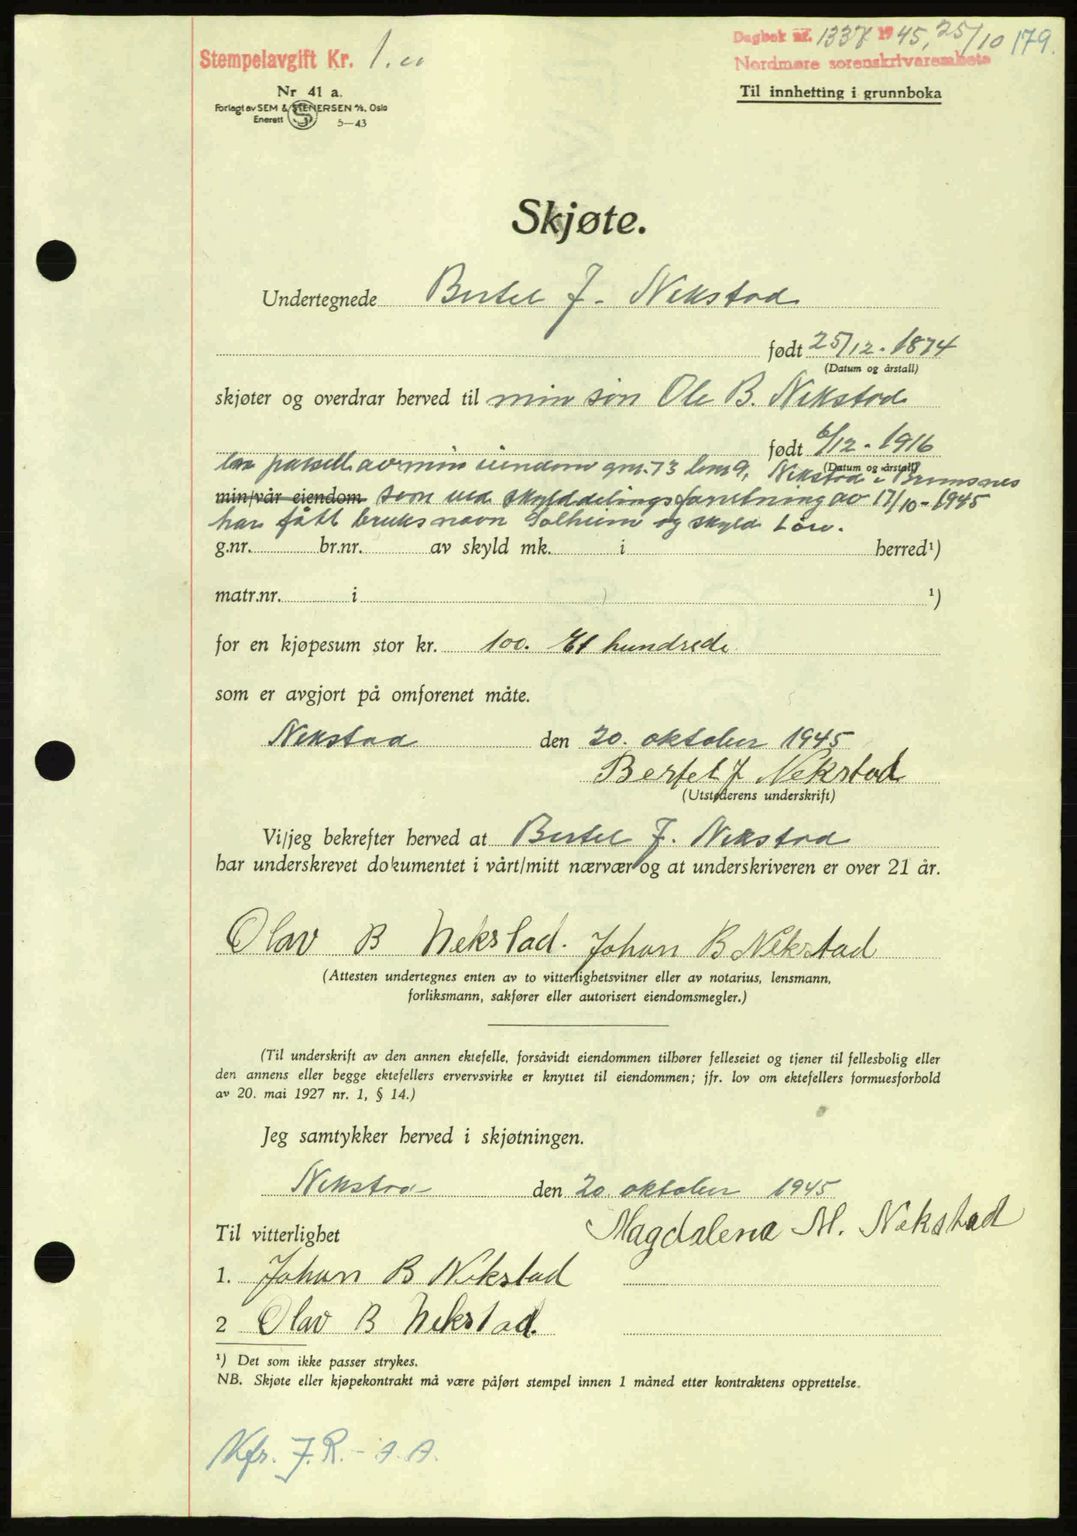 Stempelavgift Kr. 1.00
Dagbok nr. 1337 1945, 25/10 179.
Nordmøre sorenskriverembete
Nr 41 a.
Forlagt av SEM & STENERSEN A/S, Oslo
Enerett 5—43
Til innhefting i grunnboka
Skjøte.
Undertegnede Bertel J. Nekstad
født 25/12 - 1874
(Datum og årstall)
skjøter og overdrar herved til min søn Ole B. Nekstad
født 6/12 - 1916
(Datum og årstall)
en parsell av min eiendom gnr. 73 bnr 9, Nekstad i Bremsnes
min/vår eiendom som ved skylddelingsforretning av 17/10 - 1945
har fått bruksnavn Solheim og skyld 1 øre.
g.nr. br.nr. av skyld mk. i herred¹)
matr.nr. i ¹)
for en kjøpesum stor kr. 100. Et hundrede
som er avgjort på omforenet måte.
Nekstad den 20. oktober 1945
Bertel J Nekstad
(Utstederens underskrift)
Vi/jeg bekrefter herved at Bertel J. Nekstad
har underskrevet dokumentet i vårt/mitt nærvær og at underskriveren er over 21 år.
Olav B Nekstad. Johan B Nekstad
(Attesten undertegnes enten av to vitterlighetsvitner eller av notarius, lensmann,
forliksmann, sakfører eller autorisert eiendomsmegler.)
(Til underskrift av den annen ektefelle, forsåvidt eiendommen tilhører felleseiet og tjener til fellesbolig eller
den annens eller begge ektefellers ervervsvirke er knyttet til eiendommen; jfr. lov om ektefellers formuesforhold
av 20. mai 1927 nr. 1, § 14.)
Jeg samtykker herved i skjøtningen.
Nekstad den 20. oktober 1945
Til vitterlighet Magdalena M. Nekstad
1. Johan B Nekstad
2 Olav B Nekstad.
¹) Det som ikke passer strykes.
NB. Skjøte eller kjøpekontrakt må være påført stempel innen 1 måned etter kontraktens opprettelse.
Kfr. J.R. - A.A.